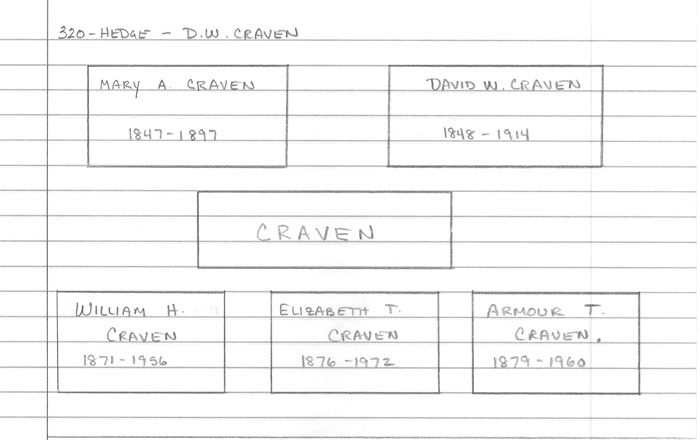 320-HEDGE - D.W. CRAVEN
MARY A. CRAVEN
1847-1897
DAVID W. CRAVEN
1848-1914
CRAVEN
WILLIAM H.
CRAVEN
1871-1956
ELIZABETH T.
CRAVEN
1876-1972
ARMOUR T.
CRAVEN.
1879-1960